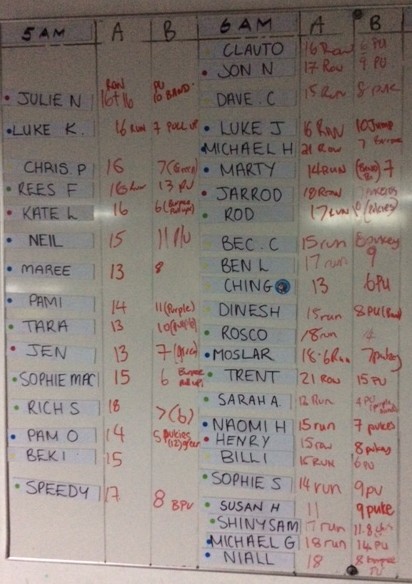 5 AM A B
ROW PU
JULIE N 16+16 10 BAND
LUKE K. 16 RUN 7 PULL UP
CHRIS. P 16 7 (Green)
REES F 13 PU
KATE L 16 6 (Burpee
NEIL 15 11 PU
MAREE 13 8
PAMI 14 11 (Purple)
TARA 13 10 (Purple)
JEN 13 7 (Green)
SOPHIE MAC 15 6 Burpee
RICH S 18 7 (6)
PAM O 14 5 pukies
BEKI 15
SPEEDY 17 8 BPU
6 AM A B
CLAUTO 16 Row 6 PU
JON N 17 Row 9 PU
DAVE . C 15 Run 8 puke
LUKE J 16 Run
MICHAEL H 21 Row 7 Burpee
MARTY 14 RUN 7
JARROD 18 Row
ROD 17 RUN
BEC. C 15 run 8 pukey
BEN L 17 run 9
CHING 13 6PU
DINESH 15 run 8 PU
ROSCO 18 run
MOSLAR 18.6 Run 7 pukey
TRENT 21 Row 15 PU
SARAH A. Run
NAOMI H 15 run 7 pukies
HENRY 15 row 8 pukey
BILLI Run 6 PU
SOPHIE S 14 run 9 pu
SUSAN H 11 9 puke
SHINY SAM 17 run
MICHAEL G 18 run 14 PU
NIALL 18 8 Burpee
PU